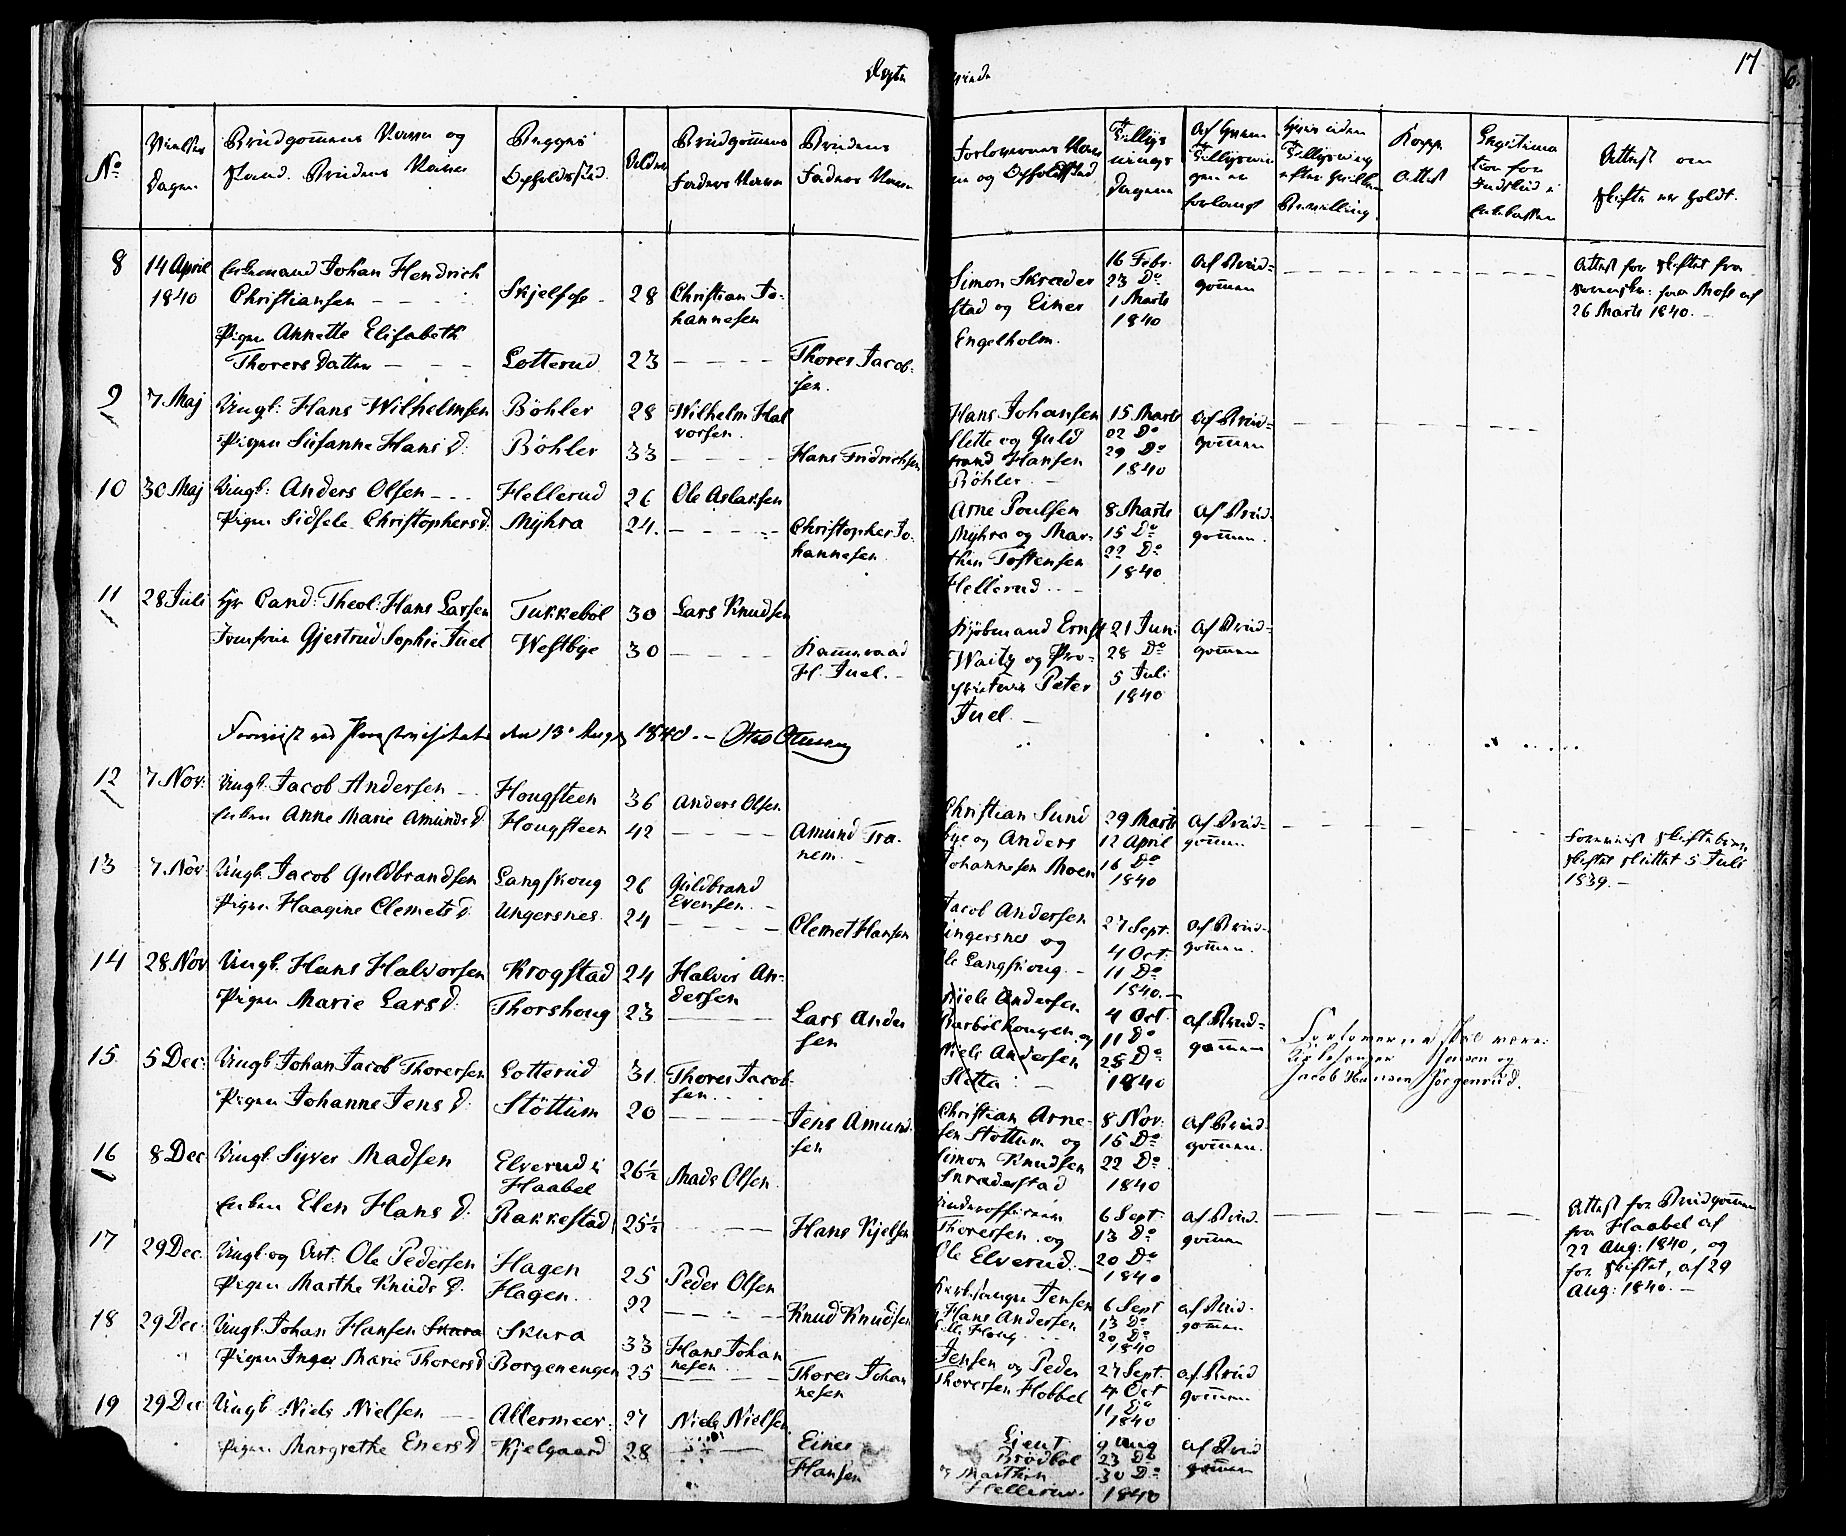 Ægte
viede
17
No
Vielses
Dagen
Brudgommens Navn og
Stand. Brudens Navn
Begges
Opholdssted.
Alder
Brudgommens
Faders Navn
Brudens
Faders Navn
Forlovernes Nav
ne og Opholdssted
Tillys
nings
Dagene
Af hvem
Tillysnin
gen er
forlangt
Hvis uden
Tillysning
efter hvilken
Bevilling.
Koppe
Attest
Legitima
tion for
Indskud i
Enkekassen
Attest om
Skifte er holdt.
8
14 April
1840
Enkemand Johan Hendrich
Christiansen
Pigen Annette Elisabeth
Thorers Datter
Skjelfos
Lotterud
28
23
Christian Jo-
hannesen
Thores Jacob-
sen.
Simon Skrader
stad og Einer
Engelholm.
16 Febr.
23 Do
1 Marts
1840
af Brud-
gommen
Attest for Skiftet fra
fra Moss af
26 Marts 1840.
9
7 Maj
Ungk: Hans Wilhelmsen
Pigen Susanne Hans D.
Böhler
Böhler
28
33
Wilhelm Hal
vorsen.
Hans Fridrichsen
Hans Johansen
Slette og Guld
brand Hansen
Böhler.
15 Marts
22 Do
29 Do
1840
af Brud-
gommen
10
30 Maj
Ungk: Anders Olsen
Pigen Sidsele Christophers D.
Hellerud
Myhra
26
24.
Ole Aslaksen
Christopher Jo-
hannesen
Arne Poulsen
Myhra og Mar-
then Tostensen
Hellerud.
8 Marts
15 Do
22 Do
1840
af Brud-
gommen.
11
28 Juli
Hr Cand: Theol: Hans Larsen
Jomfrue Gjestrud Sophie Juel
Tukkebøl
Westbye
30
30
Lars Knudsen
Kammeraad
H. Juel.
Kjøbmand Ernst
Waitz og Pro-
Peter
Juel.
21 Juni
28 Do
5 Juli
1840
af Brud-
gommen
Foreviist ved Provstevisitats den 13 Aug 1840.
12
7 Nov.
Ungk. Jacob Andersen
Enken Anne Marie Amunds D
Hougsteen
Hougsteen
36
42
Anders Olsen
Amund Tra-
nem.
Christian Sund
bye og Anders
Johannesen Moen
29 Marts
12 April
16 Do
1840
af Brud-
gommen.
Foreviist Skiftebrev
Skiftet sluttet 5 Juli
1839.
13
7 Nov
Ungk. Jacob Guldbrandsen
Pigen Haagine Clemets D.
Langskoug
Ungersnes.
26
24
Guldbrand
Evensen.
Clemet Hansen
Jacob Andersen
Ungersnes og
Ole Langskoug.
27 Sept.
4 Oct.
11 Do
1840.
af Brud-
gommen.
14
28 Nov
Ungk. Hans Halvorsen
Pigen Marie Lars D.
Krogstad
Thorshoug
24
23
Halvor An-
dersen
Lars Ander
sen
Niels Andersen
og
Niels Andersen
Sletta.
4 Oct.
11 Do
28 Do
1840
af Brud-
gommen
Forloverne skal være:
Kirkesanger Jensen og
Jacob Hansen Sorgenrud.
15
5 Dec:
Ungk. Johan Jacob Thoresen
Pigen Johanne Jens D.
Lotterud
Støttum
31.
20
Thores Jacob-
sen.
Jens Amund-
sen
Christian Arne-
sen Støttum og
Simon Knudsen
Skraderstad
8 Nov:
15 Do
22 Do
1840
af Brud-
gommen.
16
8 Dec
Ungk. Syver Madsen
Enken Elen Hans D.
Elverud i
Haabel
Rakkestad
26½
25½
Mads Olsen.
Hans Kjelsen
Underofficeer
Thoresen og
Ole Elverud.
6 Sept.
13 Do
20 Do
1840
af Brud-
gommen
Attest for Brudgommen
fra Haabel af
22 Aug: 1840, og
for Skiftet, af 29
Aug: 1840.
17
29 Dec.
Ungk. og Arb. Ole Pedersen
Pigen Marthe Knuds D.
Hagen
Hagen.
25
22
Peder Olsen
Knud Knudsen
Kirkesanger Jensen
og Hans Andersen
Houg
6 Sept
13 Do
20 Do
1840
af Brud-
gommen
18
29 Dec.
Ungk. Johan Hansen Skura
Pigen Inger Marie Thorers D
Skura
Borgenengen
33
25
Hans Johan
nesen.
Thores Johan
nesen
Jensen og Peder
Thoresen Hobbel
27 Sept.
4 Oct
11 Do
1840
af Brud
gommen
19
29 Dec
Ungk. Niels Nielsen
Pigen Margrethe Eners D
Allermeer.
Kjelgaard
27
28
Niels Nielsen.
Einer
Hansen
Lieut
Brödbøl
og Marthin
Hellerud.
9 Aug
23 Do
30 Do
1840
af Brud
gommen